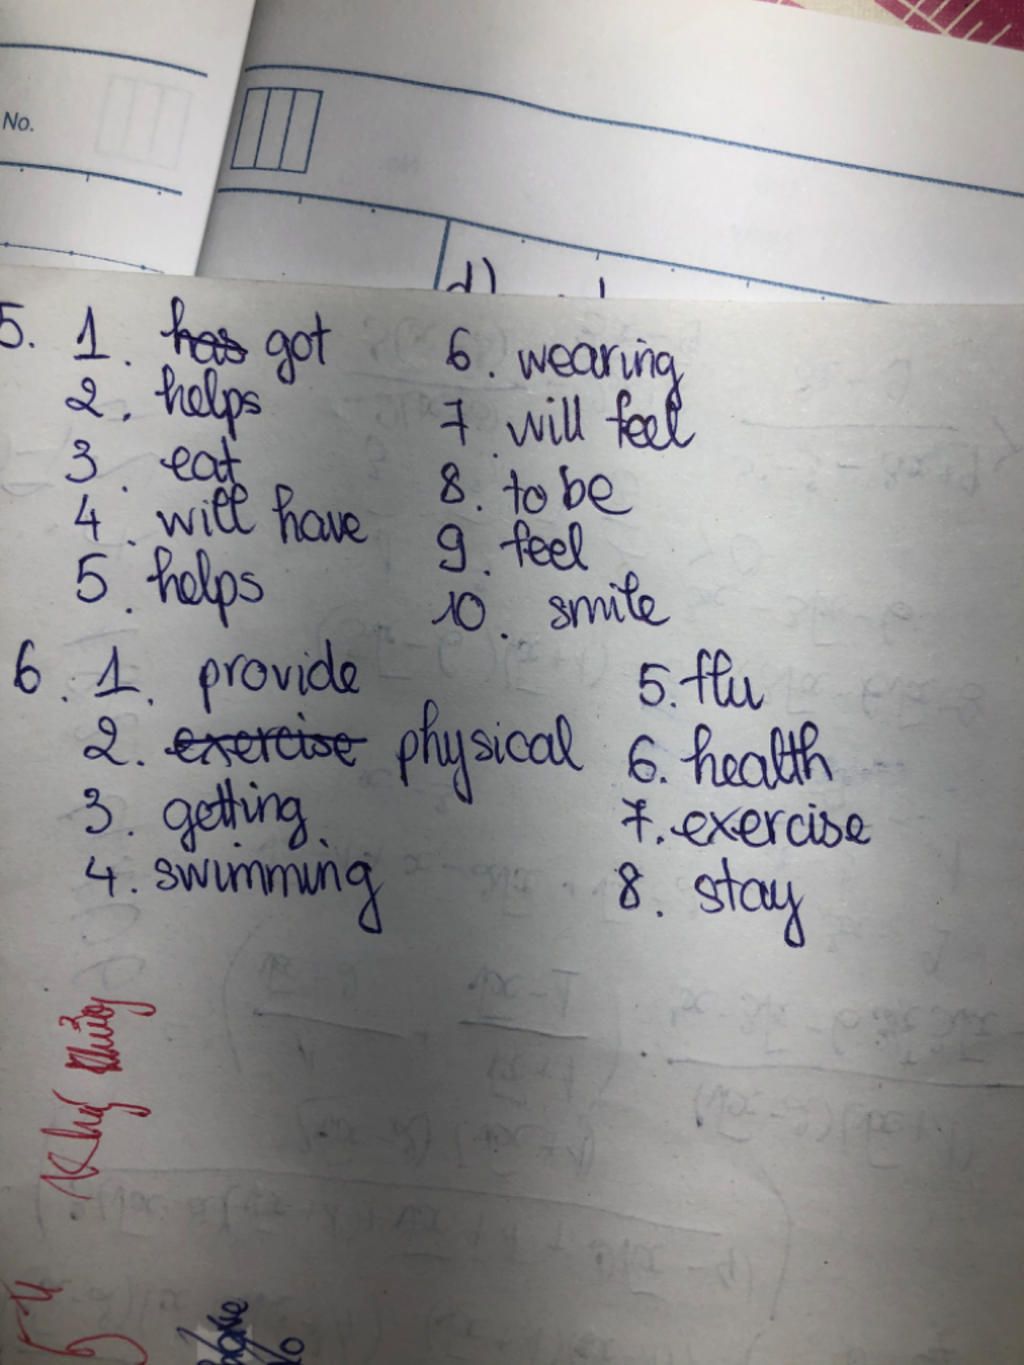 No.
d)
5. 1. has got
2. helps
3. eat
4. will have
5. helps
6. wearing
7. will feel
8. to be
9. feel
10. smile
6. 1. provide
2. exercise physical
3. getting
4. swimming
5. flu
6. health
7. exercise
8. stay